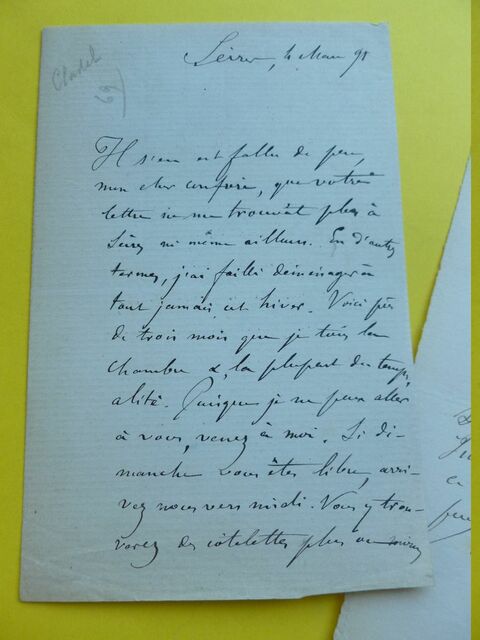 Cladel
69
Sèvres, 4 Mars 91
Il s'en est fallu de peu,
mon cher confrère, que votre
lettre ne me trouvât plus à
Sèvres ni même ailleurs. En d'autres
termes, j'ai failli déménager à
tout jamais, cet hiver. Voici près
de trois mois que je tiens la
chambre &, la plupart du temps,
alité. Puisque je ne peux aller
à vous, venez à moi. Si di-
manche vous êtes libre, arri-
vez nous vers midi. Vous y trou-
verez des côtelettes plus ou moins